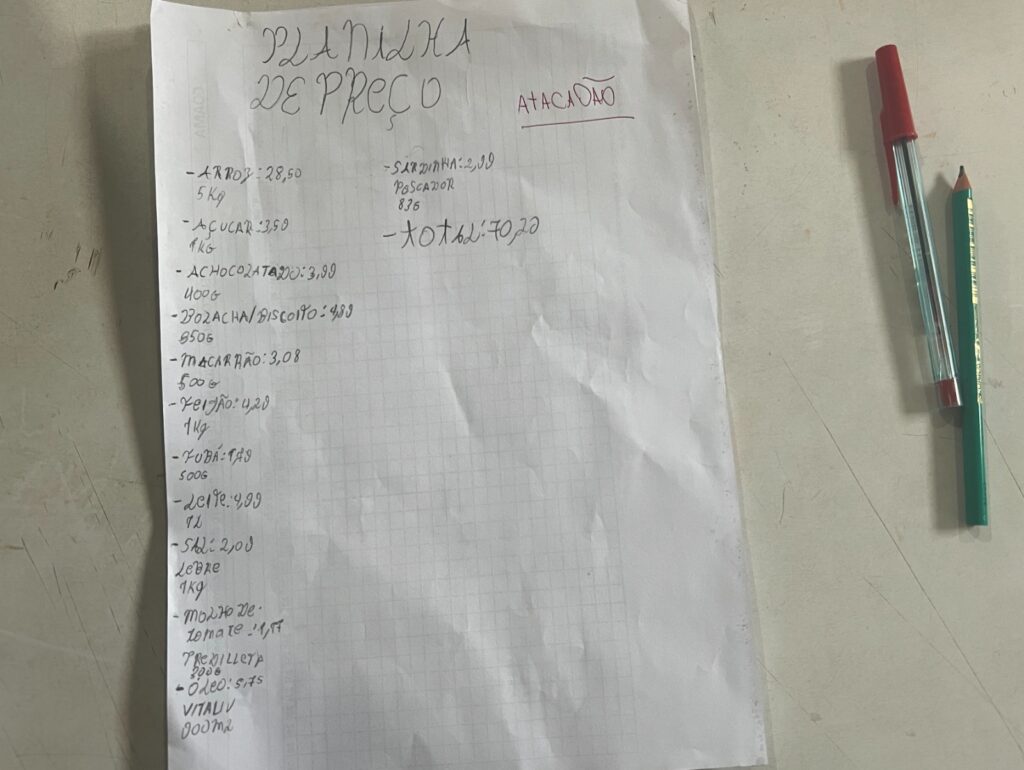 PLANILHA
DE PREÇO
ATACADÃO
- ARROZ: 28,50
5 Kg
- AÇUCAR: 3,59
1KG
- ACHOCOLATADO: 3,99
400G
- BOLACHA/BISCOITO: 4,89
350G
- MACARRÃO: 3,08
500G
- FEIJÃO: 4,29
1Kg
- FUBÁ: 1,79
500G
- LEITE: 4,99
1L
- SAL: 2,09
LEBRE
1Kg
- MOLHO DE
tomate: 1,17
300G
- ÓLEO: 5,75
VITALIV
900ML
- SARDINHA: 2,99
PESCADOR
83G
- TOTAL: 70,22